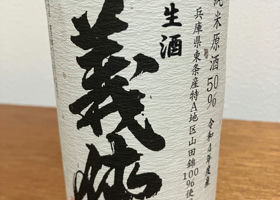 純米原酒50%
令和4年度産
兵庫県東条産特A地区山田錦100%使
生酒
義侠